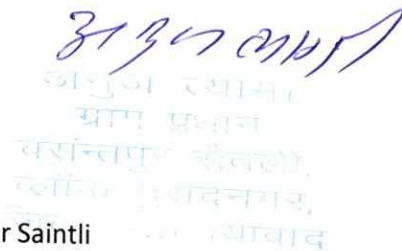 अनुज त्यागी
अनुज त्यागी
ग्राम प्रधान
बसंतपुर सैंतली,
ब्लॉक मुरादनगर,
r Saintli